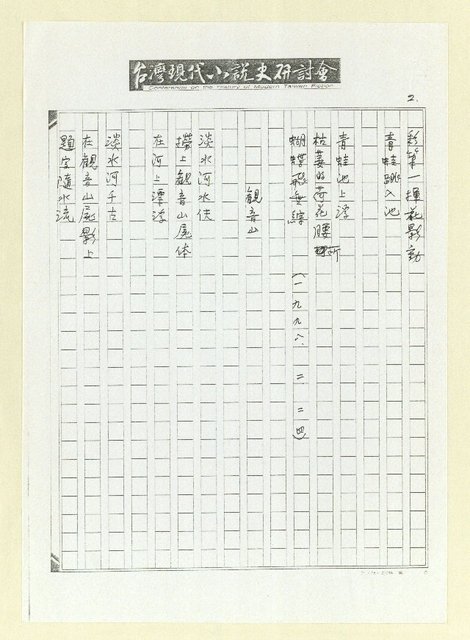 台灣現代小說史研討會
Conference on the History of Modern Taiwan Fiction
2.
第一揮 影動
青蛙跳入池
青蛙池上浮
枯萎的荷花腰所
蝴蝶飛無緣 (一九九八. 二. 二四)
觀音山
淡水河水伕
撈上觀音山屍体
在河上漂浮
淡水河千古
在觀音山屍影上
題字隨水流